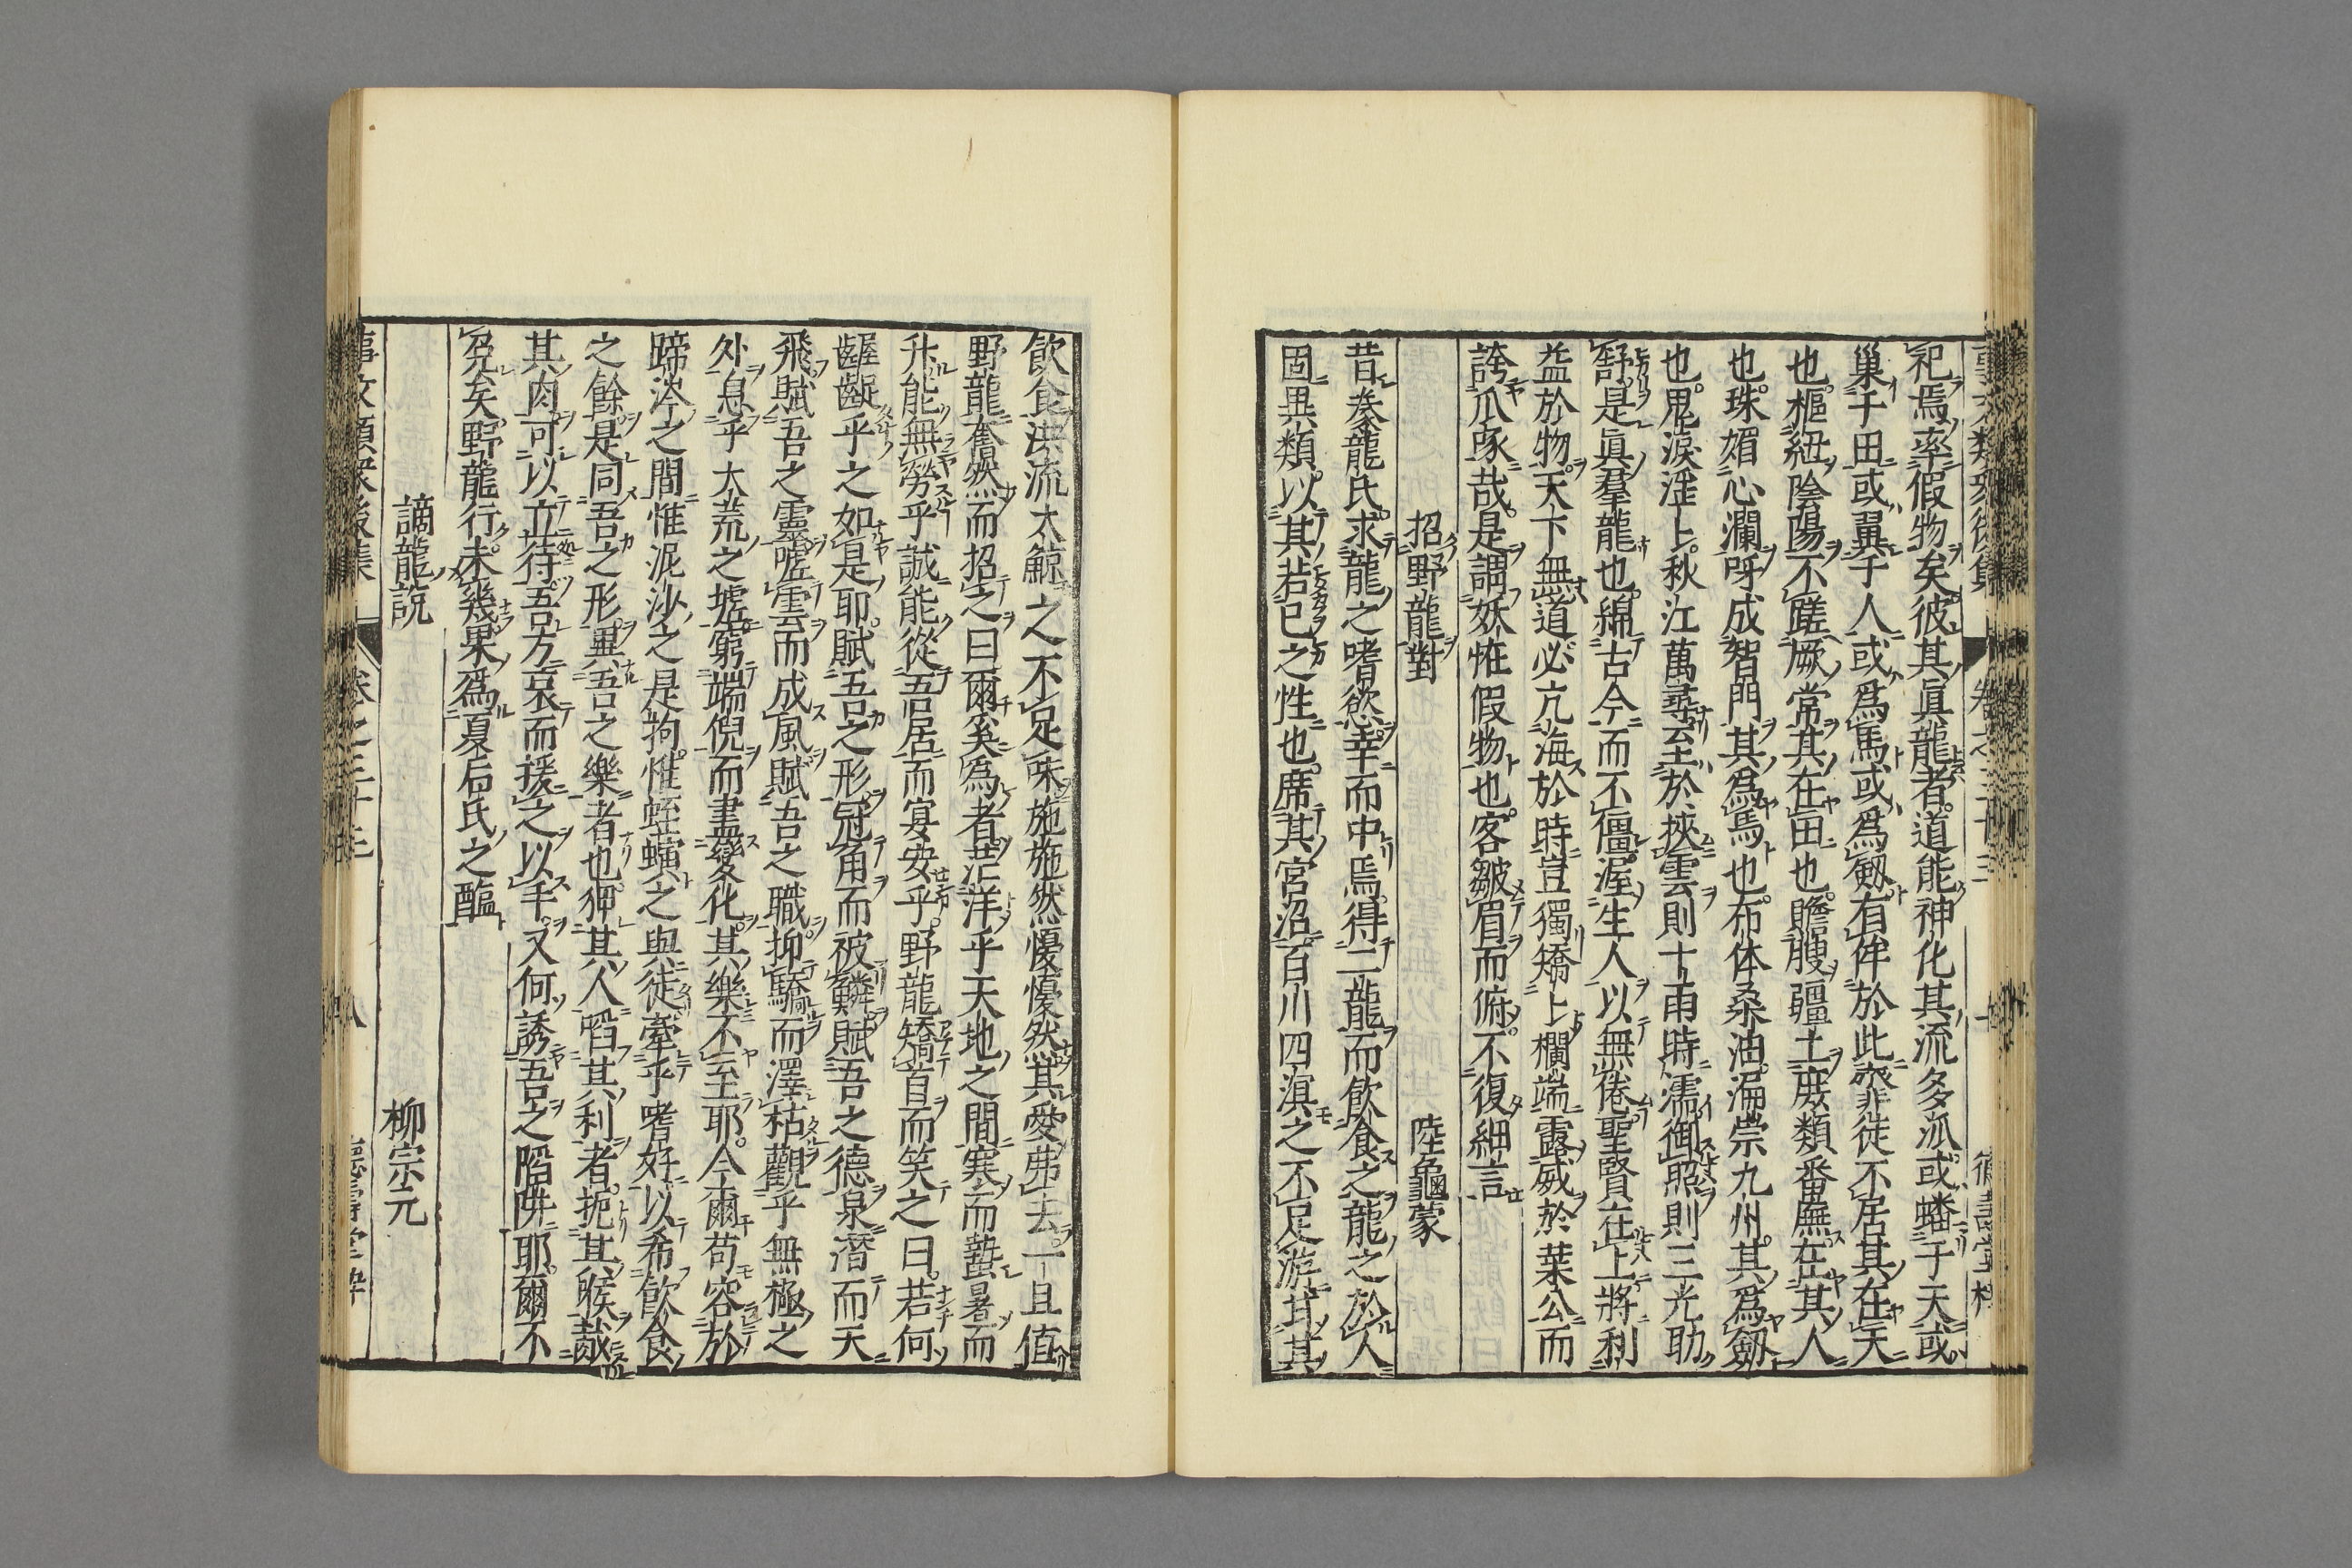 祀焉率假物矣彼其眞龍者道能神化其流多派或蟠于天或
巢于田或翼于人或爲馬或爲劔有侔於此衆非徒不居其在天
也樞紐陰陽不蹉厥常其在田也贍膄疆土庶類番廡在其人
也珠媚心瀾呀成智門其爲馬也布体桑油漏崇九州其爲劔
也鬼淚淫上秋江萬尋至於挾雲則十雨時濡御照則三光助
舒是眞羣龍也綿古今而不僵渥生人以無倦聖賢在上將利
益於物天下無道必亢海於時豈獨矯上欄端露威於葉公而
誇爪豕哉是謂妖恠假物也客皺眉而俯不復細言
招野龍對 陸龜蒙
昔豢龍氏求龍之嗜慾幸而中焉得二龍而飲食之龍之於人
固異類以其若已之性也席其宮沼百川四溟之不足游甘其
飲食洪流大鯨之不足味施施然懮懮然其愛弗去一旦值
野龍奮然而招之曰爾奚爲者茫洋乎天地之間寒而蟄暑而
升能無勞乎誠能從吾居而宴安乎野龍矯首而笑之曰若何
齷齪乎之如是耶賦吾之形冠角而被鱗賦吾之德泉潛而天
飛賦吾之靈噓雲而成風賦吾之職抑驕而澤枯觀乎無極之
外息乎大荒之墟窮端倪而盡變化其樂不至耶今爾苟容於
蹄涔之間惟泥沙之是拘惟蛭螾之與徒牽乎嗜好以希飲食
之餘是同吾之形異吾之樂者也狎其人啗其利者扼其喉胾
其肉可以立待吾方哀而援之以手又何誘吾之陷阱耶爾不
免矣野龍行未幾果爲夏后氏之醢
謫龍說 柳宗元